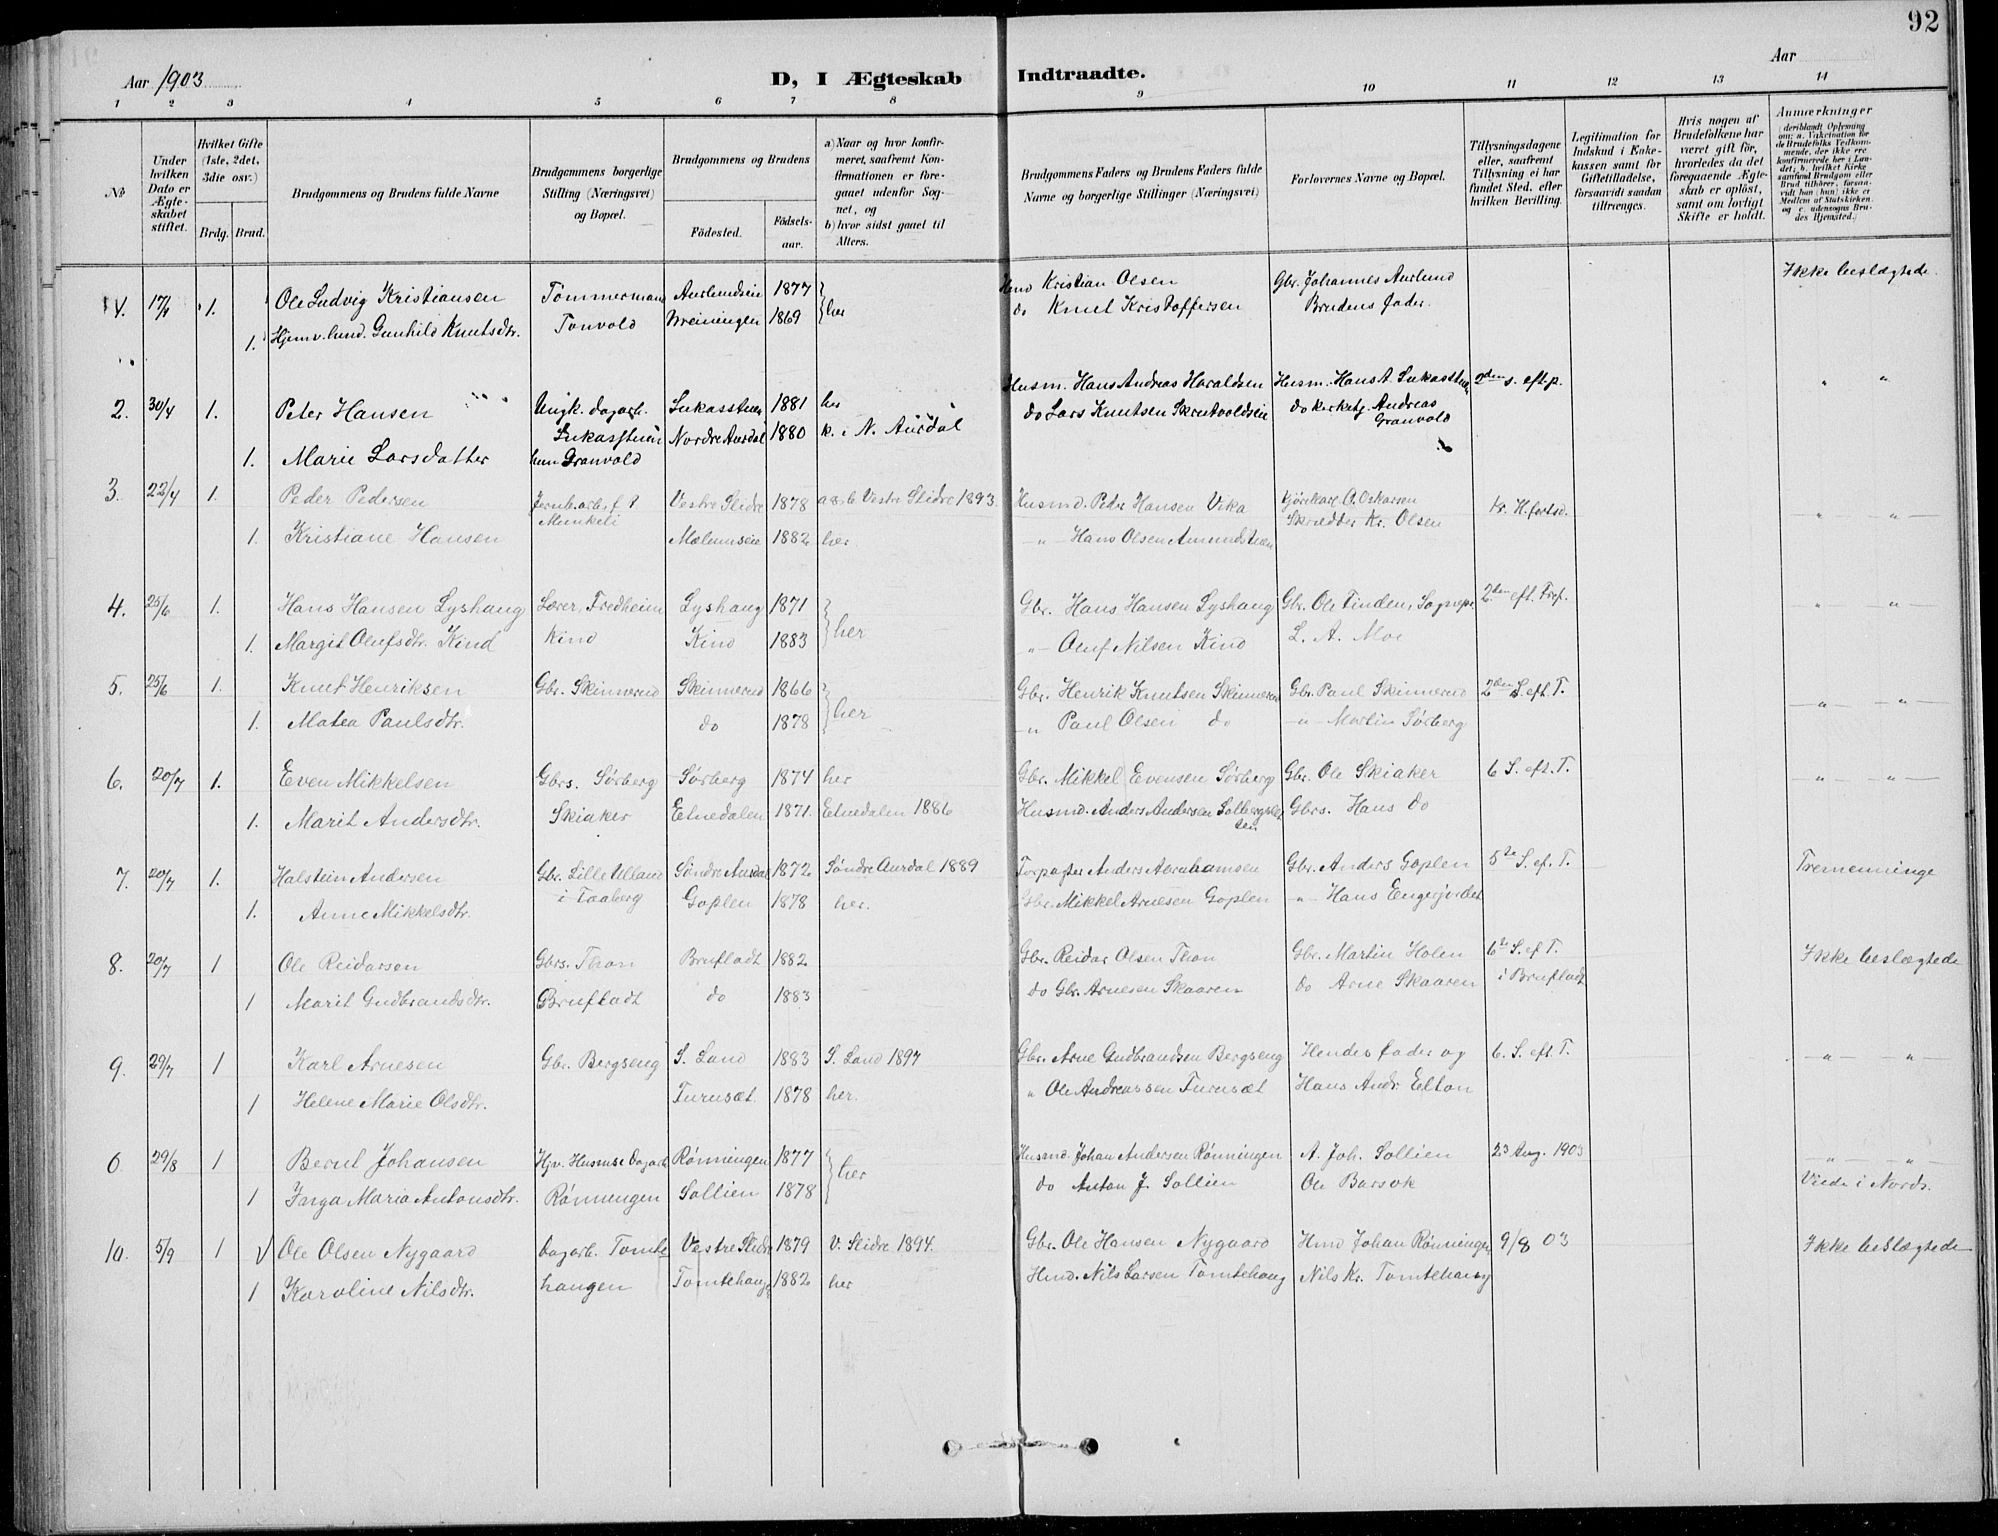 92
Aar 1903
D, I Ægteskab Indtraadte.
Aar
1 2 3 4 5 6 7 8 9 10 11 12 13 14
No
Under hvilken Dato er Ægteskabet stiftet.
Hvilket Gifte (1ste, 2det, 3die osv.)
Brdg. Brud.
Brudgommens og Brudens fulde Navne
Brudgommens borgerlige Stilling (Næringsvei) og Bopæl.
Brudgommens og Brudens
Födested.
Födsels-aar.
a) Naar og hvor konfirmeret, saafremt Konfirmationen er foregaaet udenfor Sognet, og
b) hvor sidst gaaet til Alters.
Brudgommens Faders og Brudens Faders fulde Navne og borgerlige Stillinger (Næringsvei)
Forlovernes Navne og Bopæl.
Tillysningsdagene eller, saafremt Tillysning ei har fundet Sted, efter hvilken Bevilling.
Legitimation for Indskud i Enkekassen samt for Giftetilladelse, forsaavidt saadan tiltrænges.
Hvis nogen af Brudefolkene har været gift för, hvorledes da det foregaaende Ægteskab er oplöst, samt om lovligt Skifte er holdt.
Anmærkninger
(deriblandt Oplysning om: a. Vakcination for de Brudefolks Vedkommende, der ikke ere konfirmerede her i Landet; b. hvilket Kirkesamfund Brudgom eller Brud tilhörer, forsaavidt han (hun) ikke er Medlem af Statskirken, og c. udensogns Brudes Hjemsted.)
1. 17/4 1. Ole Ludvig Kristiansen Tömmermand Aurlundseie 1877 } her Hmd Kristian Olsen Gbr. Johannes Aurlund Ikke beslægtede.
1. Hjemv. lund. Gunhild Knutsdtr. Tonvold Breiningen 1869 do Knut Kristoffersen Brudens fader.
2. 30/4 1. Peter Hansen Ungk. dagarb. Lukasstuen 1881 her Husm. Hans Andreas Haraldsen Husm. Hans A. Lukasstuen 2den s. eft. p. " "
1. Marie Larsdatter Lukasstuen hun Granvold Nordre Aurdal 1880 k. i N. Aurdal do Lars Knutsen Skrutvoldseie do kirketj. Andreas Granvold
3. 22/4 1. Peder Pedersen Jernb.arb. f. t. Munkeli Vestre Slidre 1878 a & b Vestre Slidre 1893. Husmd. Peder Hansen Vika Kjörekarl O. Oskarsen kr. H. fortsd. " "
1. Kristiane Hansen Mælumseie 1882 her " Hans Olsen Amundstuen Skrædder Kr. Olsen
4. 25/6 1. Hans Hansen Lyshaug Lærer, Fredheim Lyshaug 1871 } her Gbr. Hans Hansen Lyshaug Gbr. Ole Tinden, Sognepr. 2den eft. Tref. " "
1. Margit Olufsdtr. Kind Kind Kind 1883 " Oluf Nilsen Kind L. A. Moe
5. 25/6 1. Knut Henriksen Gbr. Skinnerud Skinnerud 1866 } her Gbr. Henrik Knutsen Skinnerud Gbr. Paul Skinnerud 2den S. eft. T. " "
1. Matea Paulsdtr. do 1878 " Paul Olsen do " Martin Sørberg
6. 20/7 1. Even Mikkelsen Gbrs. Sørberg Sørberg 1874 her Gbr. Mikkel Evensen Sørberg Gbr. Ole Skiaker 6 S. eft. T. " "
1. Marit Andersdtr. Skiaker Etnedalen 1871. Etnedalen 1886 Husmd. Anders Andersen Gbrs. Hans do
7. 20/7 1. Halstein Andersen Gbr. Lille Ulland Søndre Aurdal 1872 Søndre Aurdal 1889 Forpagter Anders Abrahamsen Gbr. Anders Goplen 5te S. ef. T. Tremenninge
1. Anne Mikkelsdtr. i Faaberg Goplen 1878 her. Gbr. Mikkel Arnesen Goplen " Hans Engerjordet
8. 20/7 1 Ole Reidarsen Gbrs. Thon Brufladt 1882 Gbr. Reidar Olsen Thon Gbr. Martin Holen 6te S. ef. T. Ikke beslægtede
1 Marit Gudbrandsdtr. Brufladt do 1883 do Gbr. Arnesen Skaaren do Arne Skaaren i Brufladt
9. 29/7 1 Karl Arnesen Gbr. Bergseng S. Land 1883 S. Land 1897 Gbr. Arne Gudbrandsen Bergseng Hendes fader og 6. S. eft. T. " "
1 Helene Marie Olsdtr. Furusæt. 1878 her. " Ole Andreassen Furusæt Hans Andr. Elton
6 29/8 1 Bernt Johansen Hjv. Husmsø Dagarb Rønningen 1877 } her Husmd. Johan Andersen Rønningen A. Joh. Sollien 23 Aug. 1903 " "
1 Inga Maria Antonsdtr. Rønningen Sollien 1878 do Anton J. Sollien Ole Barsok Viede i Nords.
10. 5/9 1 Ole Olsen Nygaard Dagarb. Tomte Vestre Slidre 1879 V. Slidre 1894. Gbr. Ole Hansen Nygaard Hmd Johan Rønningen 9/8 03 Ikke beslægtede
1 Karoline Nilsdtr. haugen Tomtehaug 1882 her Hmd. Nils Larsen Tomtehaug Nils Kr. Tomtehaug